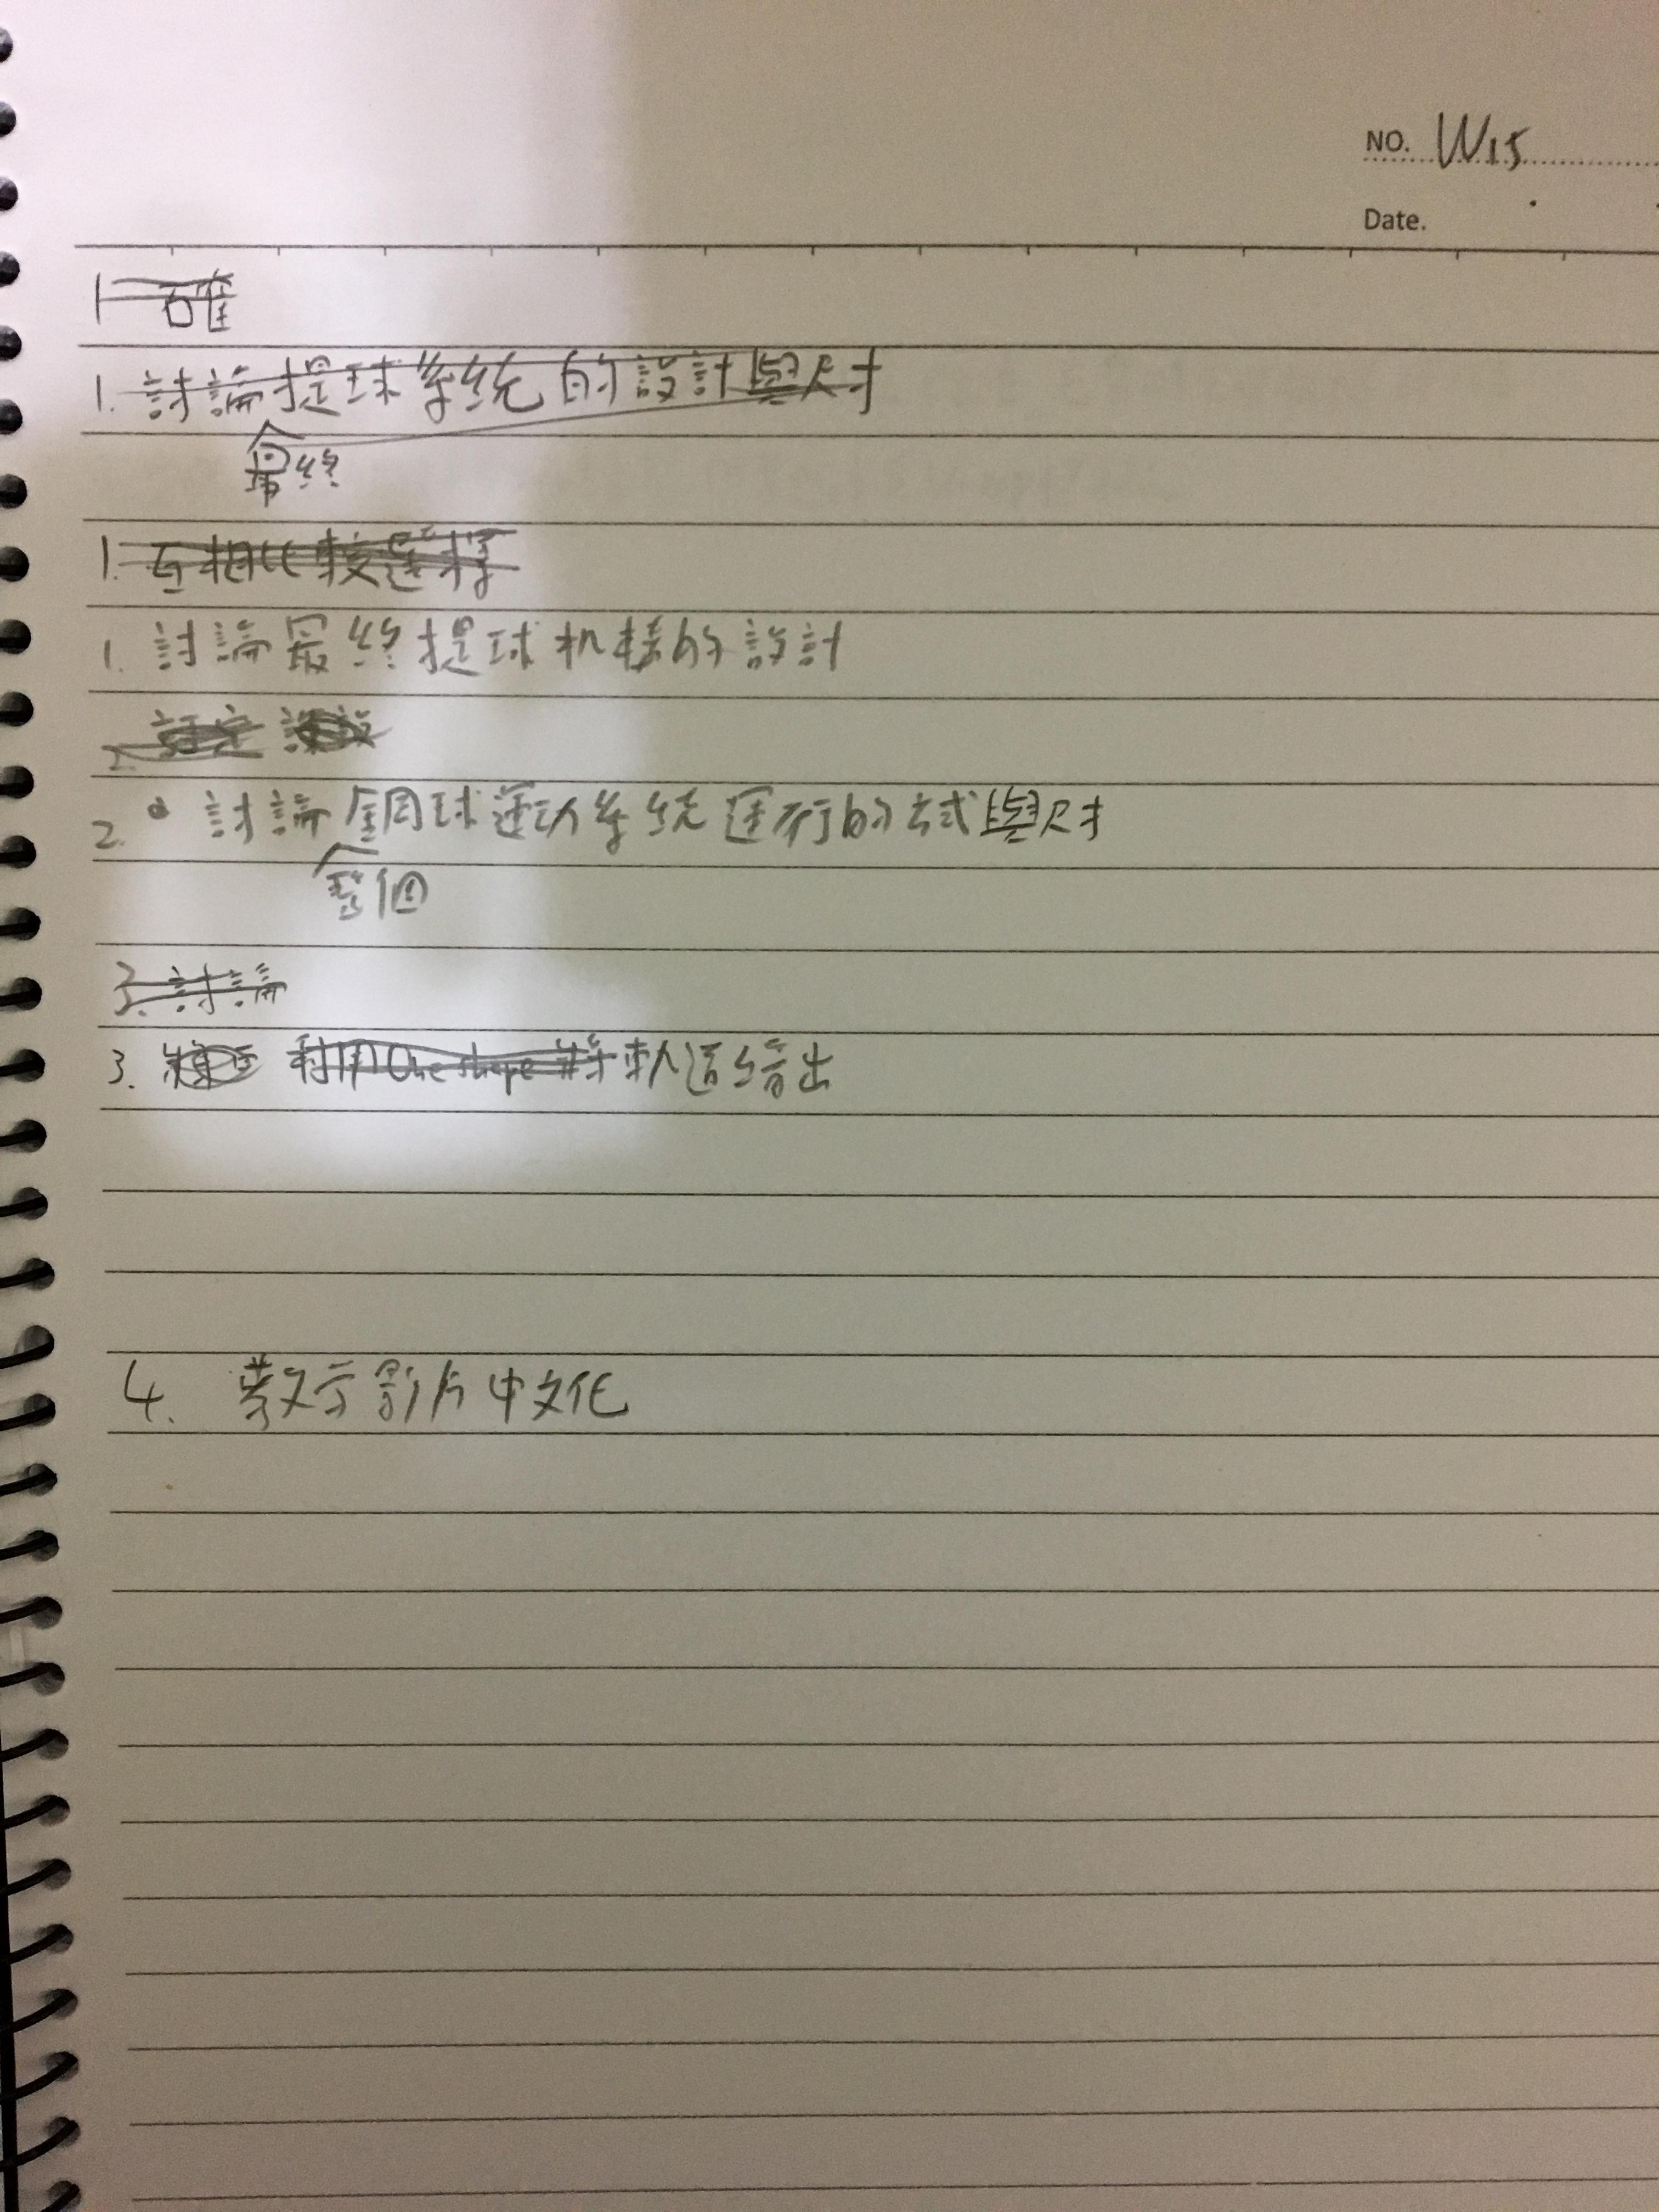 NO. W15
Date.
1 確
1. 討論提球系統的設計與尺寸
最終
1. 互相比較選擇
1. 討論最終提球机構的設計
2.
2. 討論鋼球運動系統運行的方式與尺寸
整個
3. 討論
3. 利用Oneshape 等軟體繪出
4. 教示影片中文化